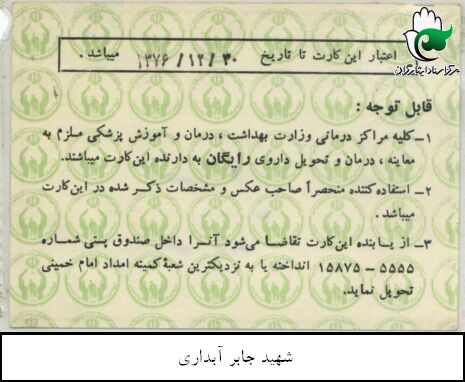 مرکز اسناد ایثارگران
اعتبار این کارت تا تاریخ ۱۳۷۶/۱۲/۳۰ میباشد.
قابل توجه:
۱ـ کلیه مراکز درمانی وزارت بهداشت، درمان و آموزش پزشکی ملزم به
معاینه، درمان و تحویل داروی رایگان به دارنده این کارت میباشند.
۲ـ استفاده کننده منحصراً صاحب عکس و مشخصات ذکر شده در این کارت
میباشد.
۳ـ از یابنده این کارت تقاضا می‌شود آنرا داخل صندوق پستی شماره
۵۵۵۵ ـ ۱۵۸۷۵ انداخته یا به نزدیکترین شعبهٔ کمیته امداد امام خمینی
تحویل نماید.
شهید جابر آبداری